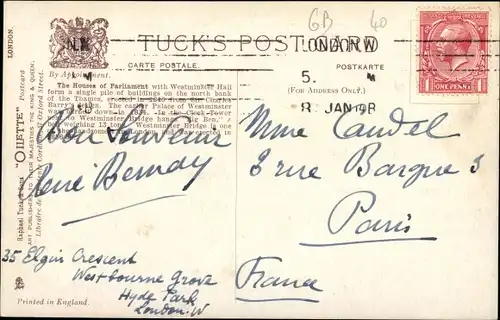 GB 40
LONDON.
TUCK'S POST CARD
CARTE POSTALE.
POSTKARTE
By Appointment.
(FOR ADDRESS ONLY.)
LONDON.W
5. M
8 JAN
ONE PENNY
The Houses of Parliament with Westminster Hall
form a single pile of buildings on the north bank
of the Thames, erected in 1840 from Sir Charles
Barry's
Palace of Westminster
In the Clock Tower
Westminster Bridge hangs "Big Ben,"
weighing 13 Westminster Bridge is one
Raphael Tuck & Sons' "OILETTE" Postcard
ART PUBLISHERS TO THEIR MAJESTIES THE KING & QUEEN.
Bon Souvenir
René Bernay
35 Elgin Crescent
Westbourne Grove
Hyde Park
London. W
Mme Caudel
3 rue Barque 3
Paris
France
Printed in England.